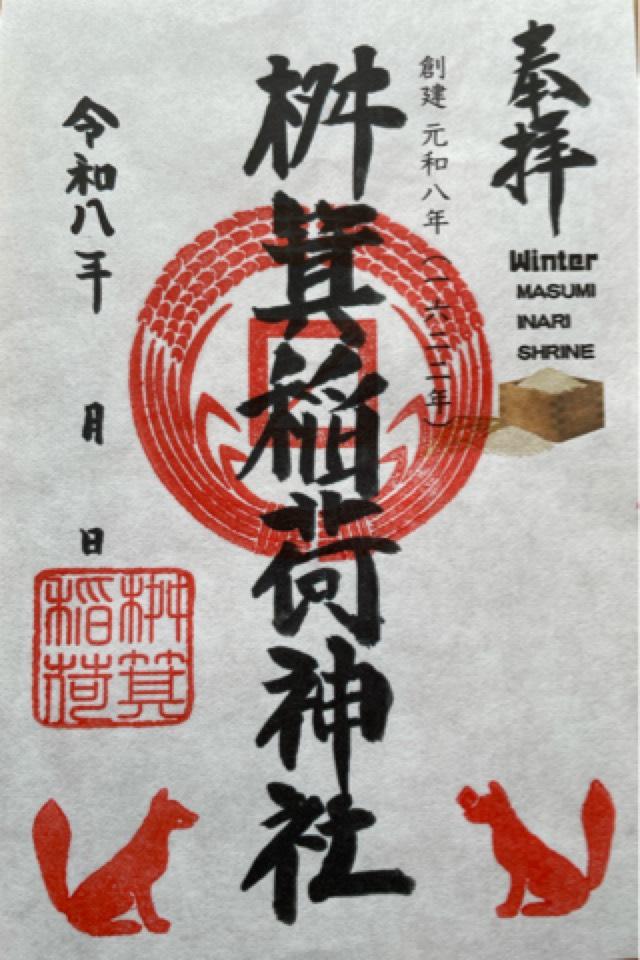 奉拝
Winter
MASUMI
INARI
SHRINE
創建 元和八年(一六二二年)
桝箕稲荷神社
令和八年 月 日
桝箕
稲荷